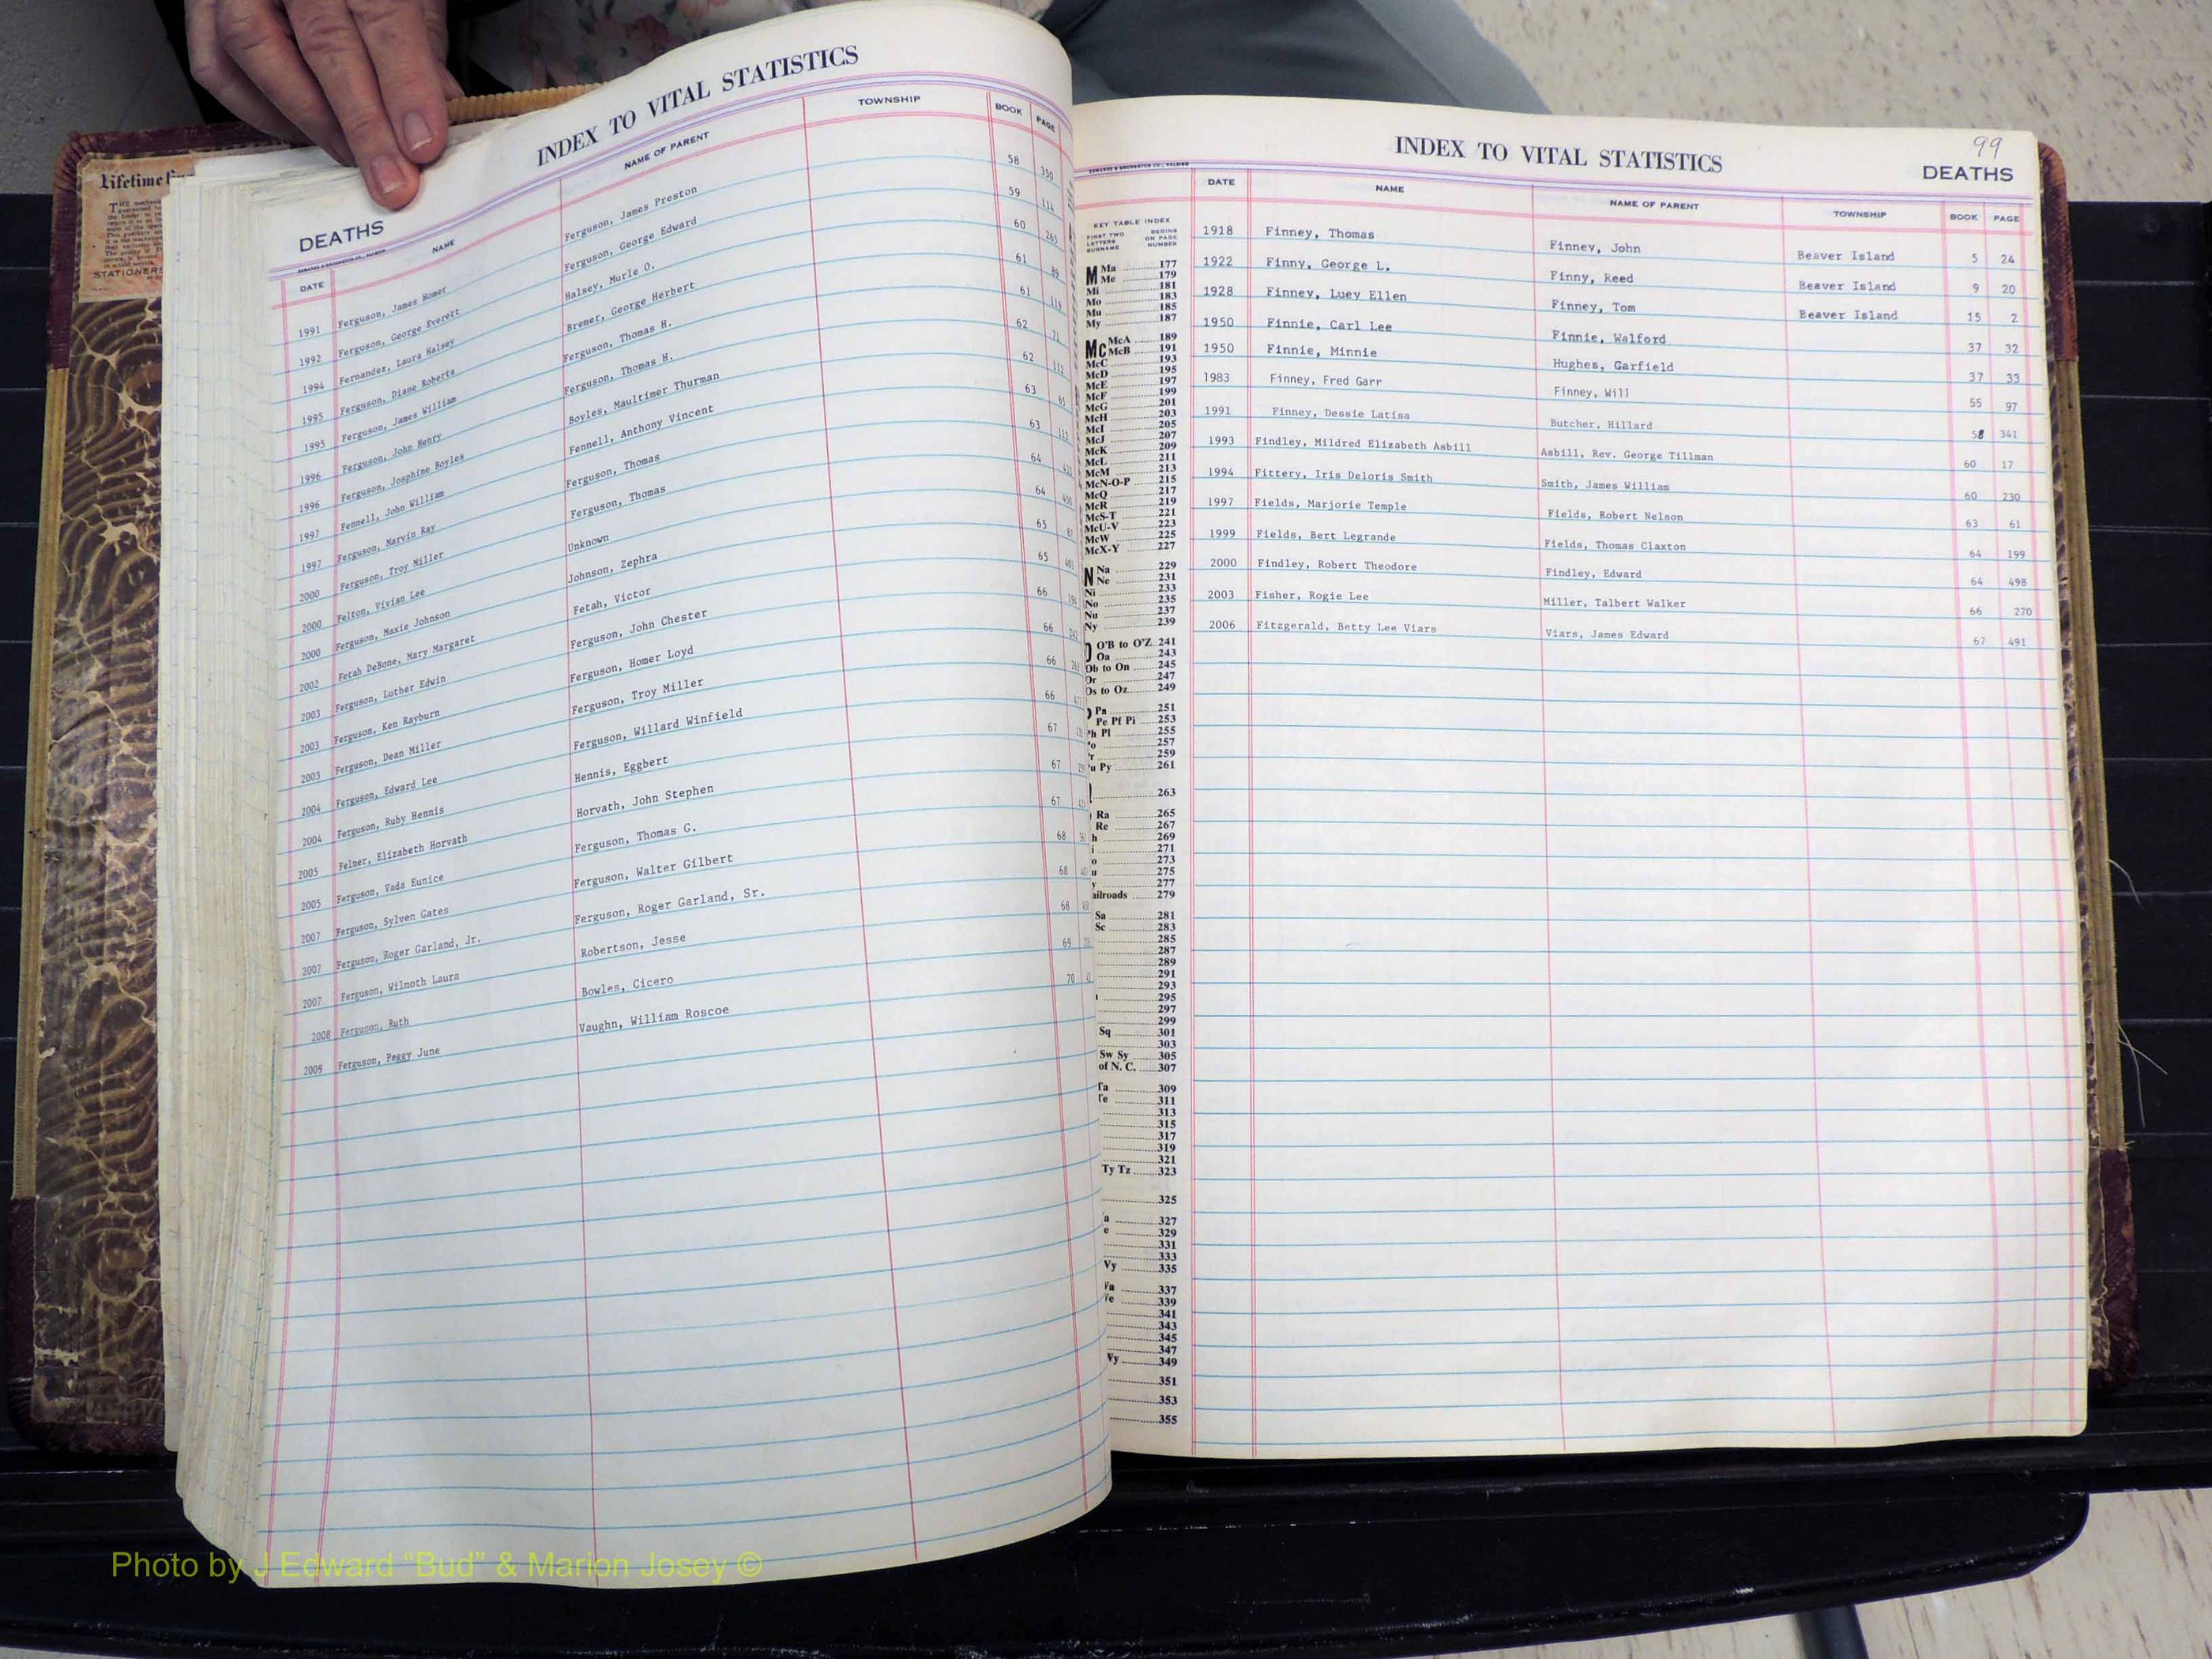 Lifetime
STATIONERS
INDEX TO VITAL STATISTICS
DEATHS
DATE NAME NAME OF PARENT TOWNSHIP BOOK PAGE
1991 Ferguson, James Homer Ferguson, James Preston 58 350
1992 Ferguson, George Everett Ferguson, George Edward 59 114
1994 Fernandez, Laura Halsey Halsey, Murle O. 60 265
1995 Ferguson, Diane Roberta Bremer, George Herbert 61 89
1995 Ferguson, James William Ferguson, Thomas H. 61 119
1996 Ferguson, John Henry Ferguson, Thomas H. 62 71
1996 Ferguson, Josphine Boyles Boyles, Maultimer Thurman 62 112
1997 Fennell, John William Fennell, Anthony Vincent 63 65
1997 Ferguson, Marvin Ray Ferguson, Thomas 63
2000 Ferguson, Troy Miller Ferguson, Thomas 64
2000 Felton, Vivian Lee Unknown 64
2000 Ferguson, Maxie Johnson Johnson, Zephra 65
2002 Fetah DeBone, Mary Margaret Fetah, Victor 65
2003 Ferguson, Luther Edwin Ferguson, John Chester 66
2003 Ferguson, Ken Rayburn Ferguson, Homer Loyd 66
2003 Ferguson, Dean Miller Ferguson, Troy Miller 66
2004 Ferguson, Edward Lee Ferguson, Willard Winfield 66
2004 Ferguson, Ruby Hennis Hennis, Eggbert 67
2005 Felner, Elizabeth Horvath Horvath, John Stephen 67
2005 Ferguson, Vada Eunice Ferguson, Thomas G. 67
2007 Ferguson, Sylven Gates Ferguson, Walter Gilbert 68
2007 Ferguson, Roger Garland, Jr. Ferguson, Roger Garland, Sr. 68
2007 Ferguson, Wilmoth Laura Robertson, Jesse 68
2008 Ferguson, Ruth Bowles, Cicero 69
2009 Ferguson, Peggy June Vaughn, William Roscoe 70
KEY TABLE INDEX
FIRST TWO LETTERS SURNAME BEGINS ON PAGE NUMBER
M Ma 177
Me 179
Mi 181
Mo 183
Mu 185
My 187
Mc McA 189
McB 191
McC 193
McD 195
McE 197
McF 199
McG 201
McH 203
McI 205
McJ 207
McK 209
McL 211
McM 213
McN-O-P 215
McQ 217
McR 219
McS-T 221
McU-V 223
McW 225
McX-Y 227
N Na 229
Ne 231
Ni 233
No 235
Nu 237
Ny 239
O'B to O'Z 241
Oa 243
Ob to On 245
Or 247
Os to Oz 249
Pa 251
Pe Pf Pi 253
Ph Pl 255
257
259
Pu Py 261
263
Ra 265
Re 267
269
271
273
275
277
ailroads 279
Sa 281
Sc 283
285
287
289
291
293
295
297
299
Sq 301
303
Sw Sy 305
of N. C. 307
Ta 309
Te 311
313
315
317
319
321
Ty Tz 323
325
327
329
331
333
Vy 335
337
339
341
343
345
347
Wy 349
351
353
355
99
INDEX TO VITAL STATISTICS
DEATHS
DATE NAME NAME OF PARENT TOWNSHIP BOOK PAGE
1918 Finney, Thomas Finney, John Beaver Island 5 24
1922 Finny, George L. Finny, Reed Beaver Island 9 20
1928 Finney, Luey Ellen Finney, Tom Beaver Island 15 2
1950 Finnie, Carl Lee Finnie, Walford 37 32
1950 Finnie, Minnie Hughes, Garfield 37 33
1983 Finney, Fred Garr Finney, Will 55 97
1991 Finney, Dessie Latisa Butcher, Hillard 58 341
1993 Findley, Mildred Elizabeth Asbill Asbill, Rev. George Tillman 60 17
1994 Fittery, Iris Deloris Smith Smith, James William 60 230
1997 Fields, Marjorie Temple Fields, Robert Nelson 63 61
1999 Fields, Bert Legrande Fields, Thomas Claxton 64 199
2000 Findley, Robert Theodore Findley, Edward 64 498
2003 Fisher, Rogie Lee Miller, Talbert Walker 66 270
2006 Fitzgerald, Betty Lee Viars Viars, James Edward 67 491
Photo by J Edward “Bud” & Marion Josey ©